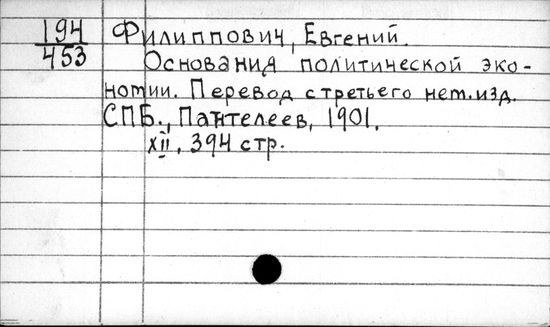 194 Филиппович, Евгений.
453 Основания политической эко-
номии. Перевод с третьего нем. изд.
СПБ., Пантелеев, 1901.
XII, 394 стр.